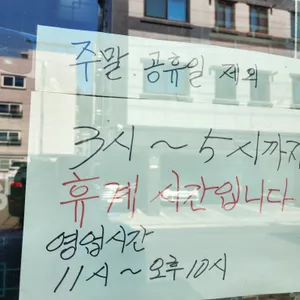 주말. 공휴일 제외
3시 ~ 5시까지
휴계 시간입니다
영업시간
11시 ~ 오후 10시